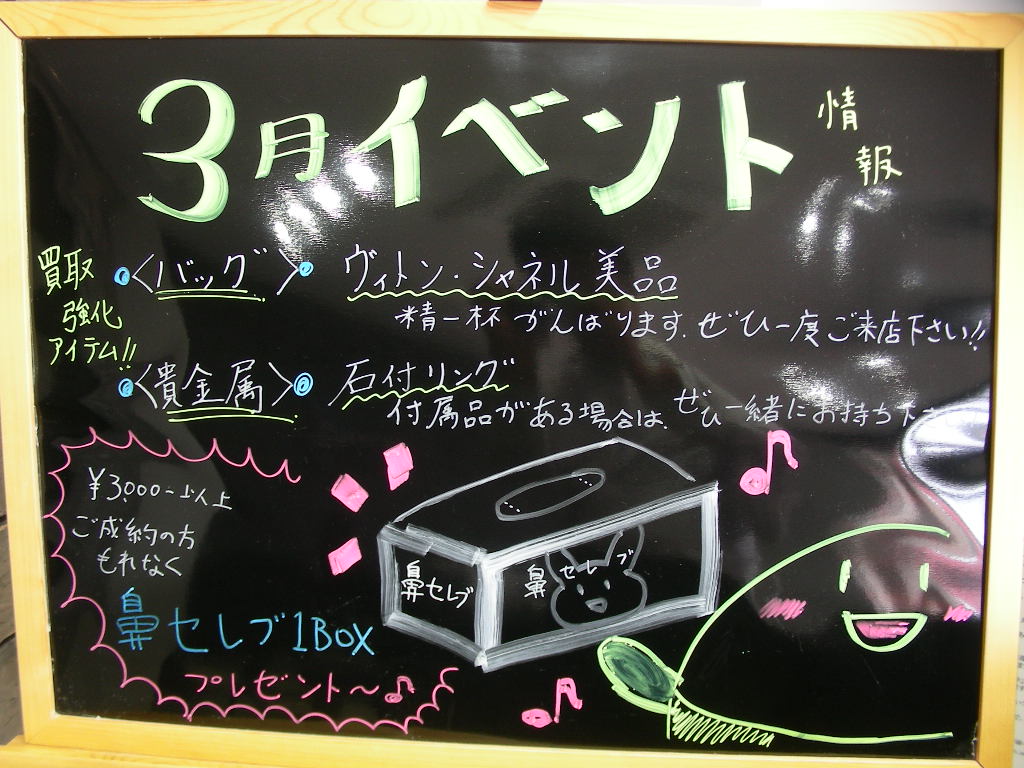 3月イベント
情報
買取
強化
アイテム!!
<バッグ> ヴィトン・シャネル美品
精一杯がんばります。ぜひ一度ご来店下さい!!
<貴金属> 石付リング
付属品がある場合は、ぜひ一緒にお持ち下さ
¥3,000-以上
ご成約の方
もれなく
鼻セレブ1BOX
プレゼント〜♪
鼻セレブ
鼻セレブ